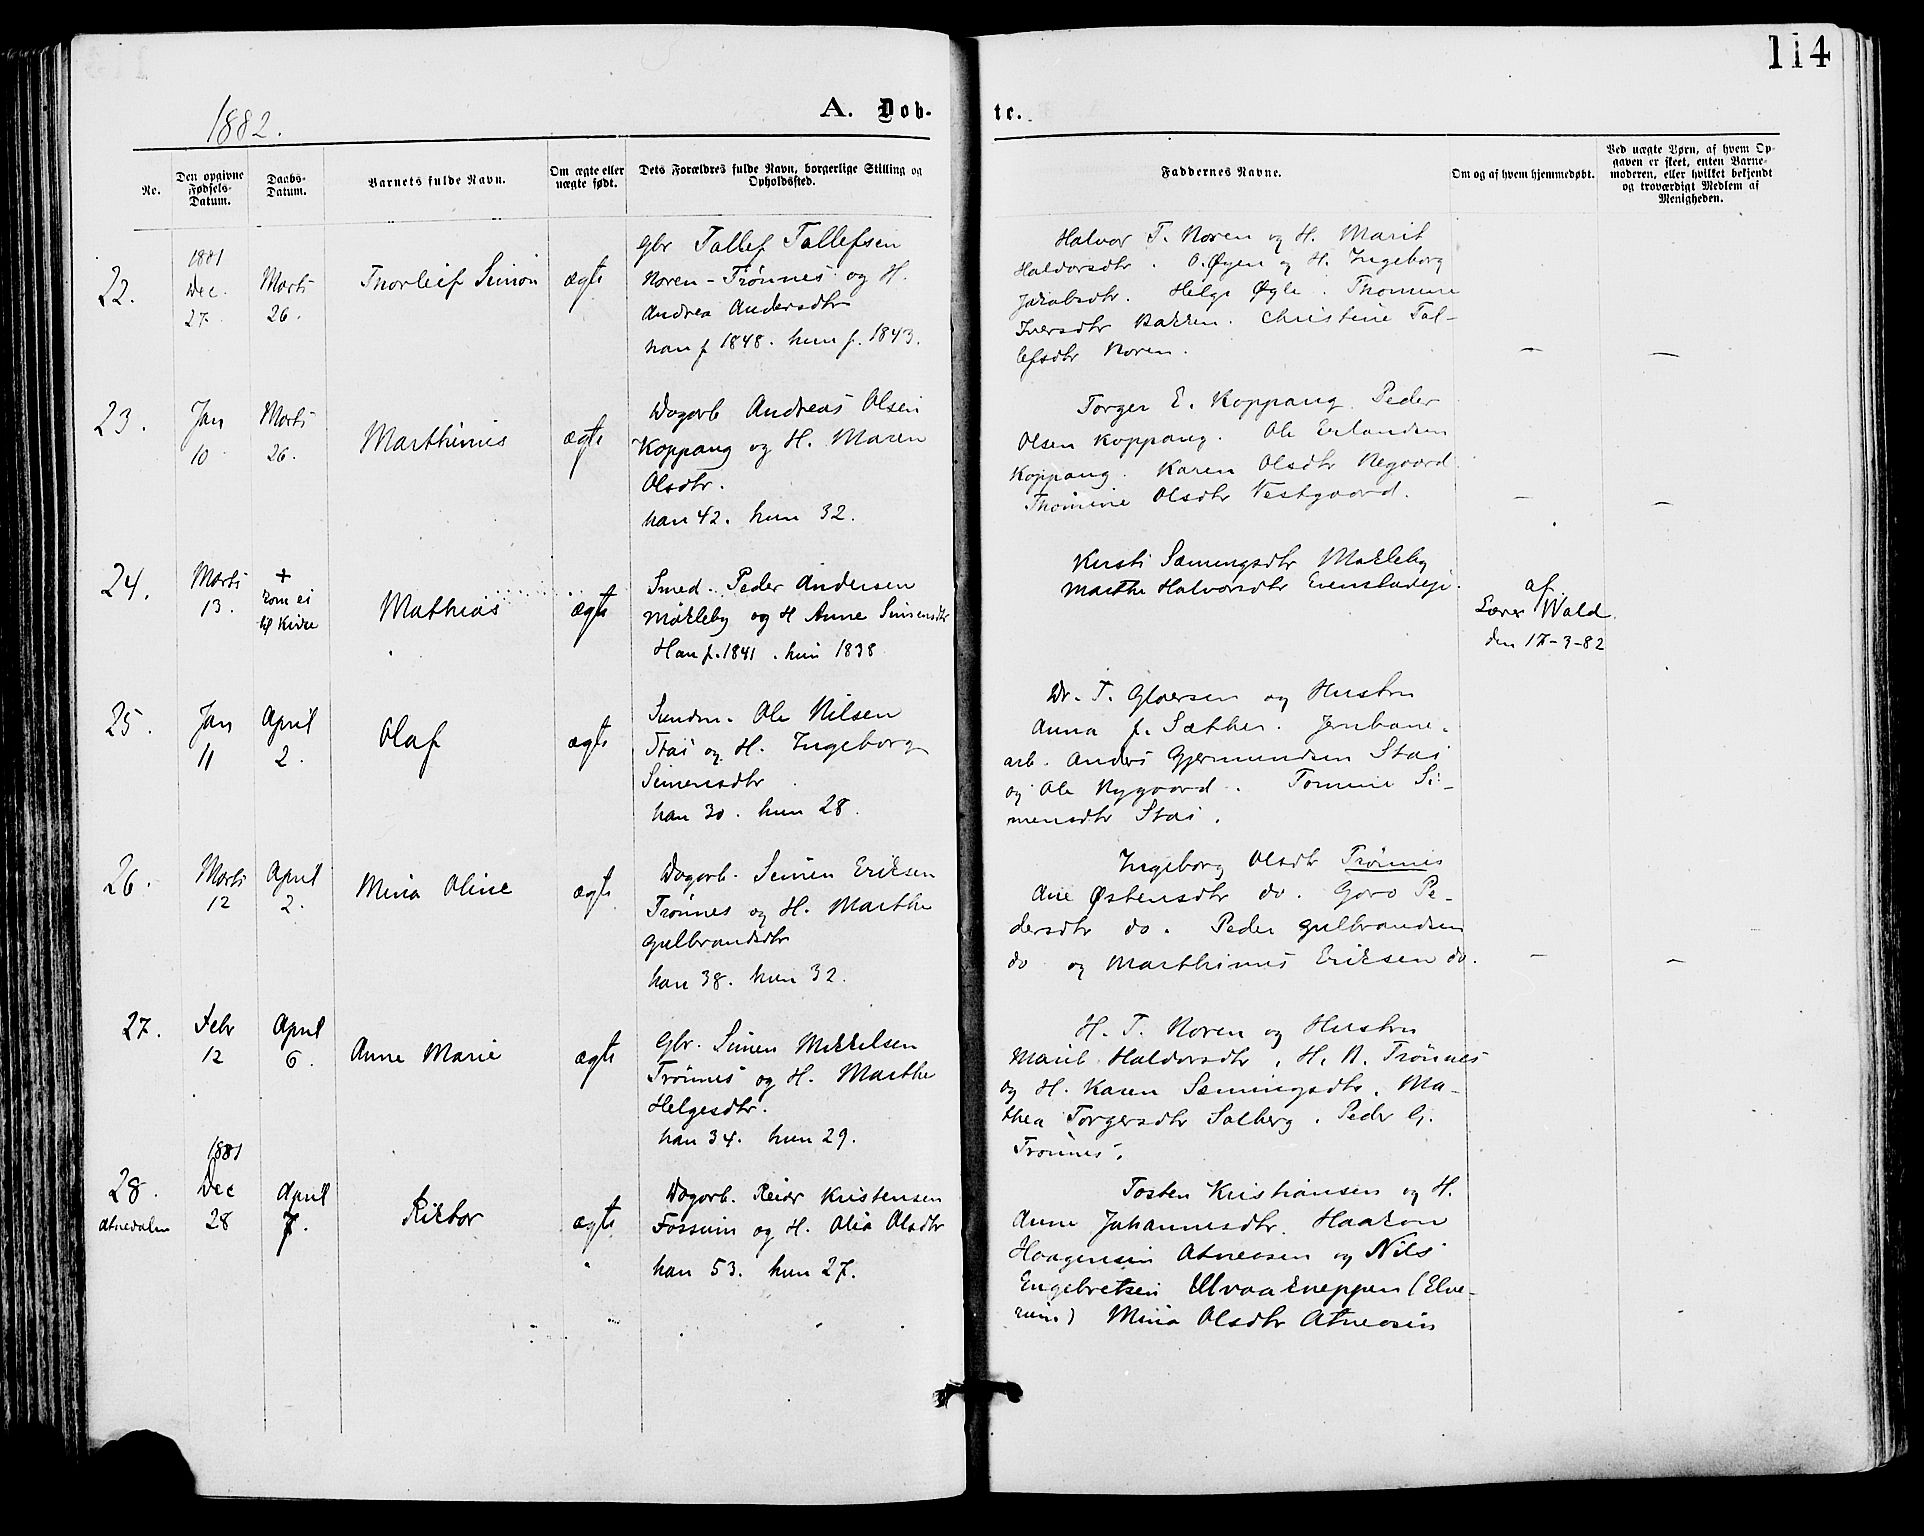 114
1882.
A. Døb-
te.
No.
Den opgivne Fødsels-Datum.
Daabs-Datum.
Barnets fulde Navn.
Om ægte eller uægte født.
Dets Forældres fulde Navn, borgerlige Stilling og Opholdssted.
Faddernes Navne.
Om og af hvem hjemmedøbt.
Ved uægte Børn, af hvem Op-
gaven er skeet, enten Barne-
moderen, eller hvilket bekjendt
og troværdigt Medlem af
Menigheden.
22.
1881
Dec.
27
Marts
26.
Thorleif Simon
ægte
Gbr Tallef Tallefsen
Noren - Trønnes og H.
Andrea Andersdtr
han f 1848. hun f. 1843.
Halvor T. Noren og H. Marit
Haldorsdtr. O. Øyen og H. Ingeborg
Jakobsdtr. Helge Øgle. Thomine
Iversdtr Bakken. Christine Tal-
lefsdtr Noren.
23.
Jan
10
Marts
26.
Marthinus
ægte
Dagarb Andreas Olsen
Koppang og H. Maren
Olsdtr.
han 42. hun 32.
Torger E. Koppang. Peder
Olsen Koppang. Ole Erlandsen
Koppang. Karen Olsdtr Negaard
Thomine Olsdtr Vestgaard.
24.
Marts
13.
+
kom ei
til Kirke
Mathias
ægte
Smed. Peder Andersen
Møkleby og H Anne Simensdtr
Han f. 1841. hun 1838
Kirsti Sæmingsdtr Møkleby
Marthe Halvorsdtr Evenstadeje.
af
Lærer Wald.
den 17-3-82
25.
Jan
11
April
2.
Olaf
ægte
Ole Nilsen
Stai og H. Ingeborg
Simensdtr
han 30. hun 28.
Dr. T. Gløersen og Hustru
Anna f. Sæther. Jernbane-
arb. Anders Gjermundsen Stai
og Ole Nygaard. Tomine Si-
mensdtr Stai.
26.
Marts
12
April
2.
Mina Oline
ægte
Dagarb. Simen Eriksen
Trønnes og H. Marthe
Gulbrandsdtr
han 38. hun 32.
Ingeborg Olsdtr Trønnes
Ane Østensdtr do. Goro Pe-
dersdtr do. Peder Gulbrandsen
do og Marthinus Eriksen do.
27.
Febr
12
April
6.
Anne Marie
ægte
Gbr. Simen Mikkelsen
Trønnes og H. Marthe
Helgesdtr.
han 34. hun 29.
H. T. Noren og Hustru
Marit Haldorsdtr, H. N. Trønnes
og H. Karen Sæmingsdtr. Ma-
thea Torgersdtr Solberg. Peder G.
Trønnes.
28.
Atnedalen
1881
Dec
28
April
7.
Rikbor
ægte
Dagarb. Reier Kristensen
Fossum og H. Olia Olsdtr
han 53. hun 27.
Tosten Kristiansen og H.
Anne Johannesdtr. Haakon
Haagensen Atneosen og Nils
Engebretsen Ulvaakneppen (Elve-
rum) Mina Olsdtr Atneosen